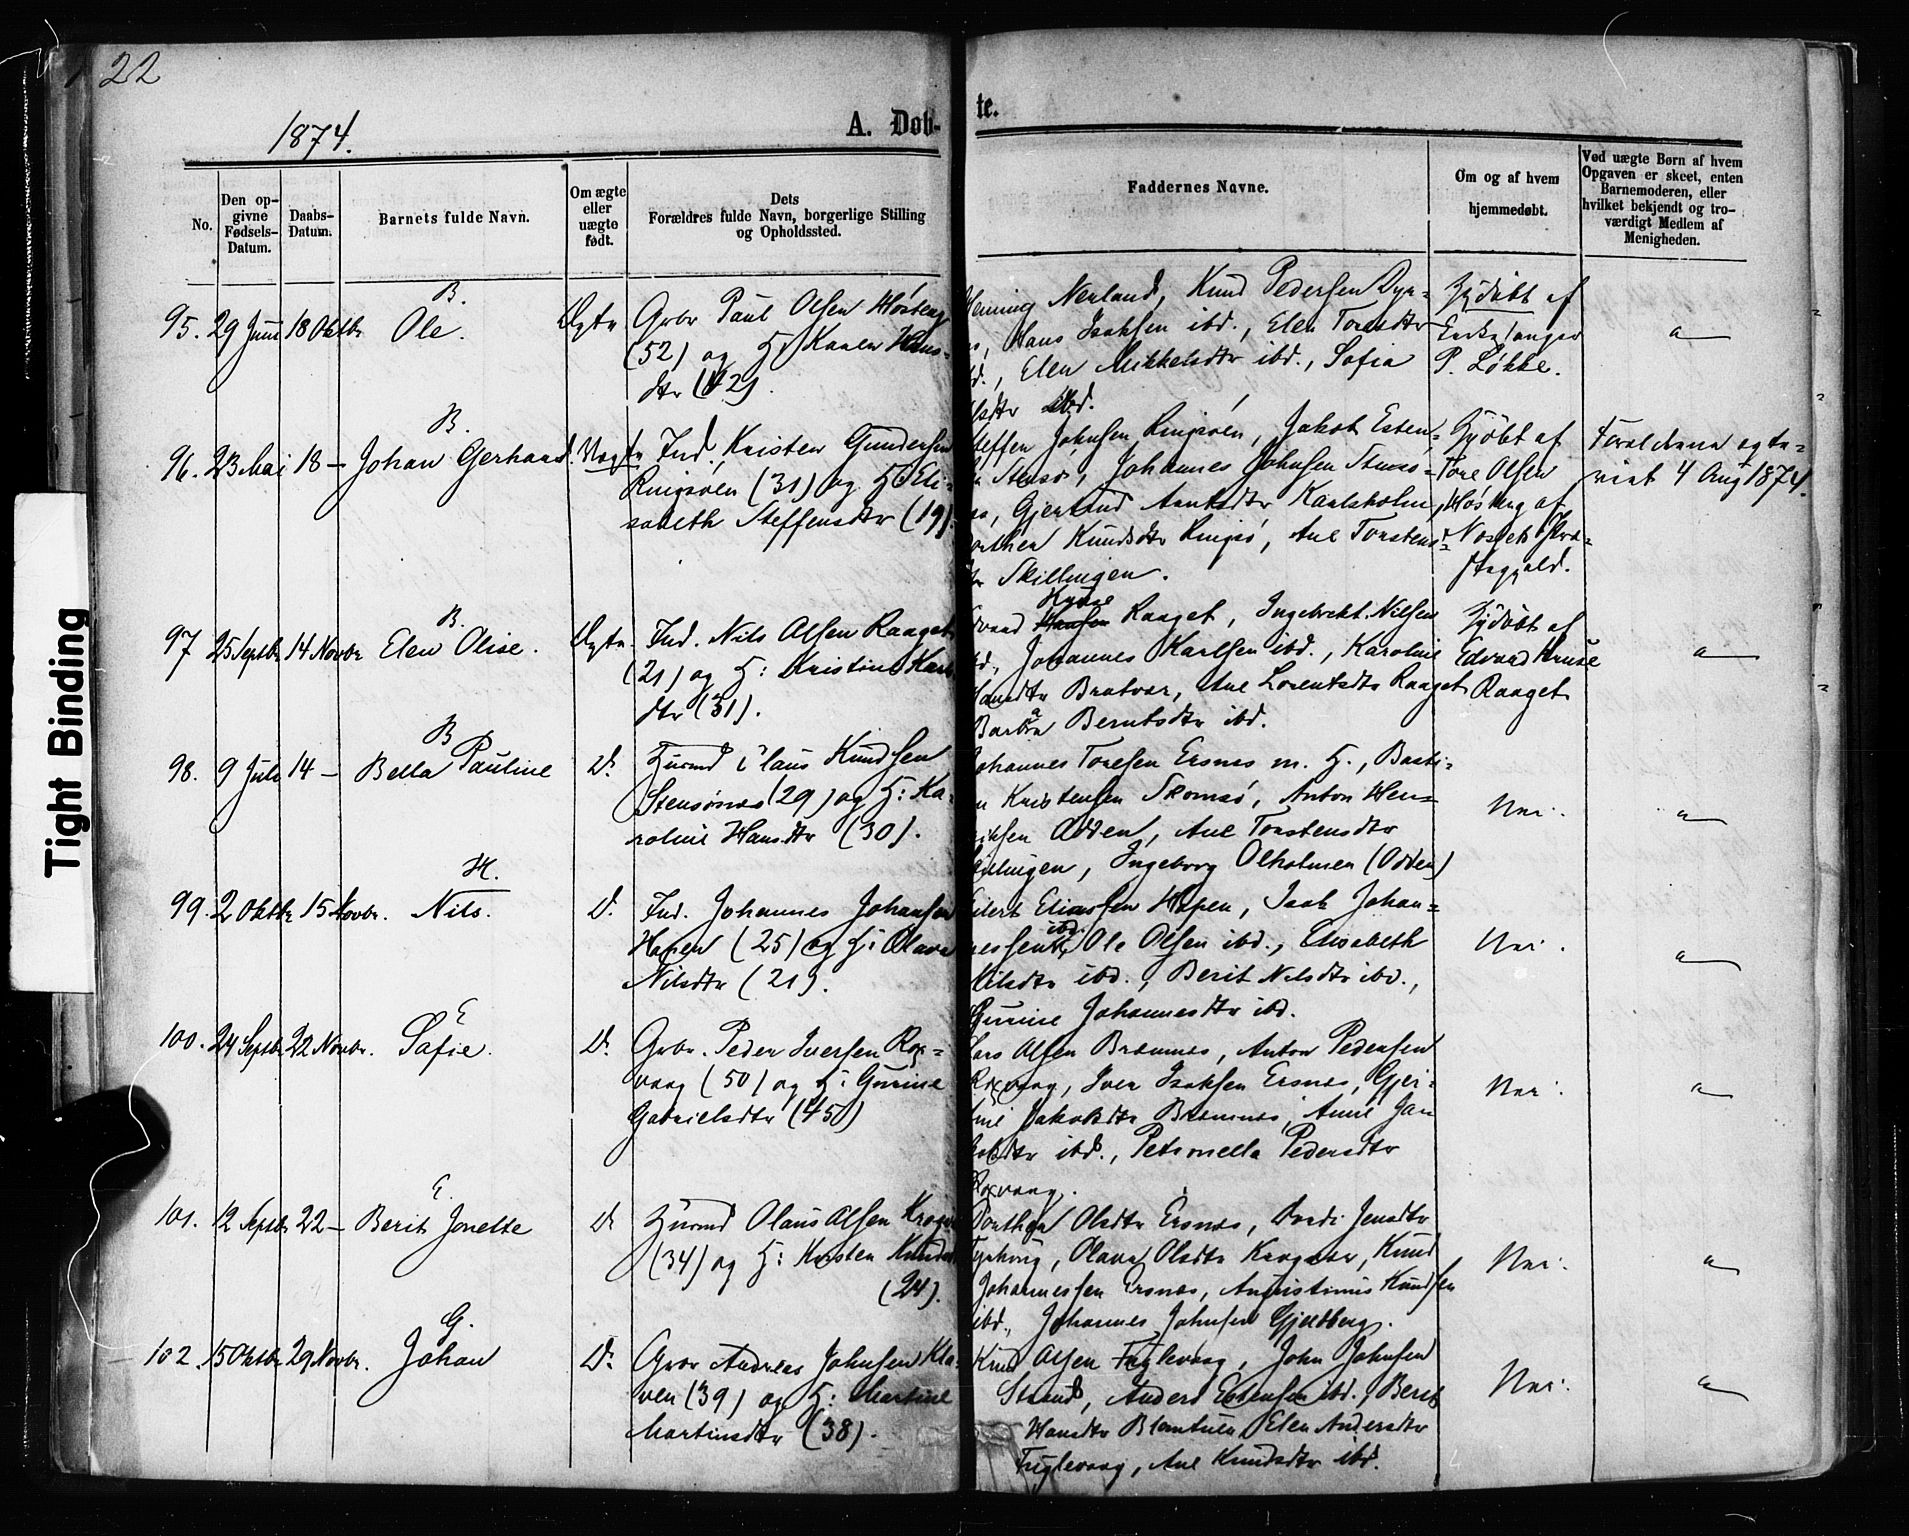 22
1874.
A. Døb-
te.
No.
Den op-
givne
Fødsels-
Datum.
Daabs-
Datum.
Barnets fulde Navn.
Om ægte
eller
uægte
født.
Dets
Forældres fulde Navn, borgerlige Stilling
og Opholdssted.
Faddernes Navne.
Om og af hvem
hjemmedøbt.
Ved uægte Børn af hvem
Opgaven er skeet, enten
Barnemoderen, eller
hvilket bekjendt og tro-
værdigt Medlem af
Menigheden.
B.
95. 29 Juni 18 Oktbr Ole. Gbr Paul Olsen
(52) og H: Karen Hans-
dtr (42).
Neuland, Knud Pedersen Dyr-
Hans Isaksen ibd., Elen Torsdtr
Elen Mikkelsdtr ibd., Sofia
ibd.
Hjdøbt af
P. Løkke.
B.
96. 23 Mai 18 — Johan Gerhard. Uægte Ind. Kristen Gundersen
Ringsøen (31) og H: Eli-
sabeth Steffensdtr (19).
Steffen Johnsen Ringsøen, Jakob Esten-
Stensø, Johannes Johnsen Stens-
Gjertrud Karlsholm,
Knudsdtr Ringsø, Ane Torstens-
Skillingen.
Hjdøbt af
Tore Olsen
Høsteng af
Næsset Præ-
stegjeld.
Forældrene egte-
viet 4 Aug 1874.
B.
97 25 Septbr 14 Novbr Elen Olise. Ægte. Ind. Nils Olsen Raaget
(21) og H: Kristine Karls
dtr (31).
Kruse
Edvard Hansen Raaget, Ingebrekt Nilsen
ibd., Johannes Karlsen ibd., Karoline
Hansdtr Bratvær, Ane Lorentsdtr Raaget
Barbra Berntsdtr ibd.
Hjdøbt af
Edvard Kruse
Raaget
B
98. 9 Juli 14 — Bella Pauline D. Husmd Claus Knudsen
Stensønes (29) og H: Ka-
roline Hansdtr (30).
Johannes Toresen Ersnes m. H., Basti-
an Kristensen Skomsø, Anton Hen-
riksen Odden, Ane Torstensdtr
Skillingen, Ingeborg Olholmen (Odden)
Nei.
H.
99. 2 Oktbr 15 Novbr. Nils. D. Ind. Johannes Johansen
Hopen (25) og H: Olava
Nilsdtr (21).
Eilert Eliassen Hopen, Isak Johan-
nessen ibd. Ole Olsen ibd., Elisabeth
Nilsdtr ibd., Berit Nilsdtr ibd.,
Gurine Johannesdtr ibd.
Nei.
E
100. 24 Septbr 22 Novbr. Sofie. D. Gbr. Peder Iversen Rox-
vaag (50) og H: Gurine
Gabrielsdtr (45)
Lars Olsen Bremnes, Anton Pedersen
Roxvaag, Iver Isaksen Ersnes, Gjer-
tine Jakobsdtr Bremnes, Anne Ja-
kobsdtr ibd., Petronella Pedersdtr
Roxvaag.
Nei.
E.
101. 12 Septbr 22 — Berit Jonette D. Husmd Olaus Olsen
(34) og H: Kirsten Knuds
(24).
Dorthea Olsdtr Ersnes, Jensdtr
Olava Olsdtr Knud
Johannessen Ersnes, Augustinus Knudsen
ibd., Johannes Johnsen Gjeldberg.
Nei.
G.
102. 15 Oktbr 29 Novbr. Johan D. Gbr Andreas Johnsen Kla-
ven (39) og H: Martine
Martinsdtr (38).
Knud Olsen Fuglevaag, John Johnsen
Strand, Anders Estensen ibd., Berit
Hansdtr Elen Andersdtr
Fuglevaag, Ane Knudsdtr ibd.
Nei.
Tight Binding